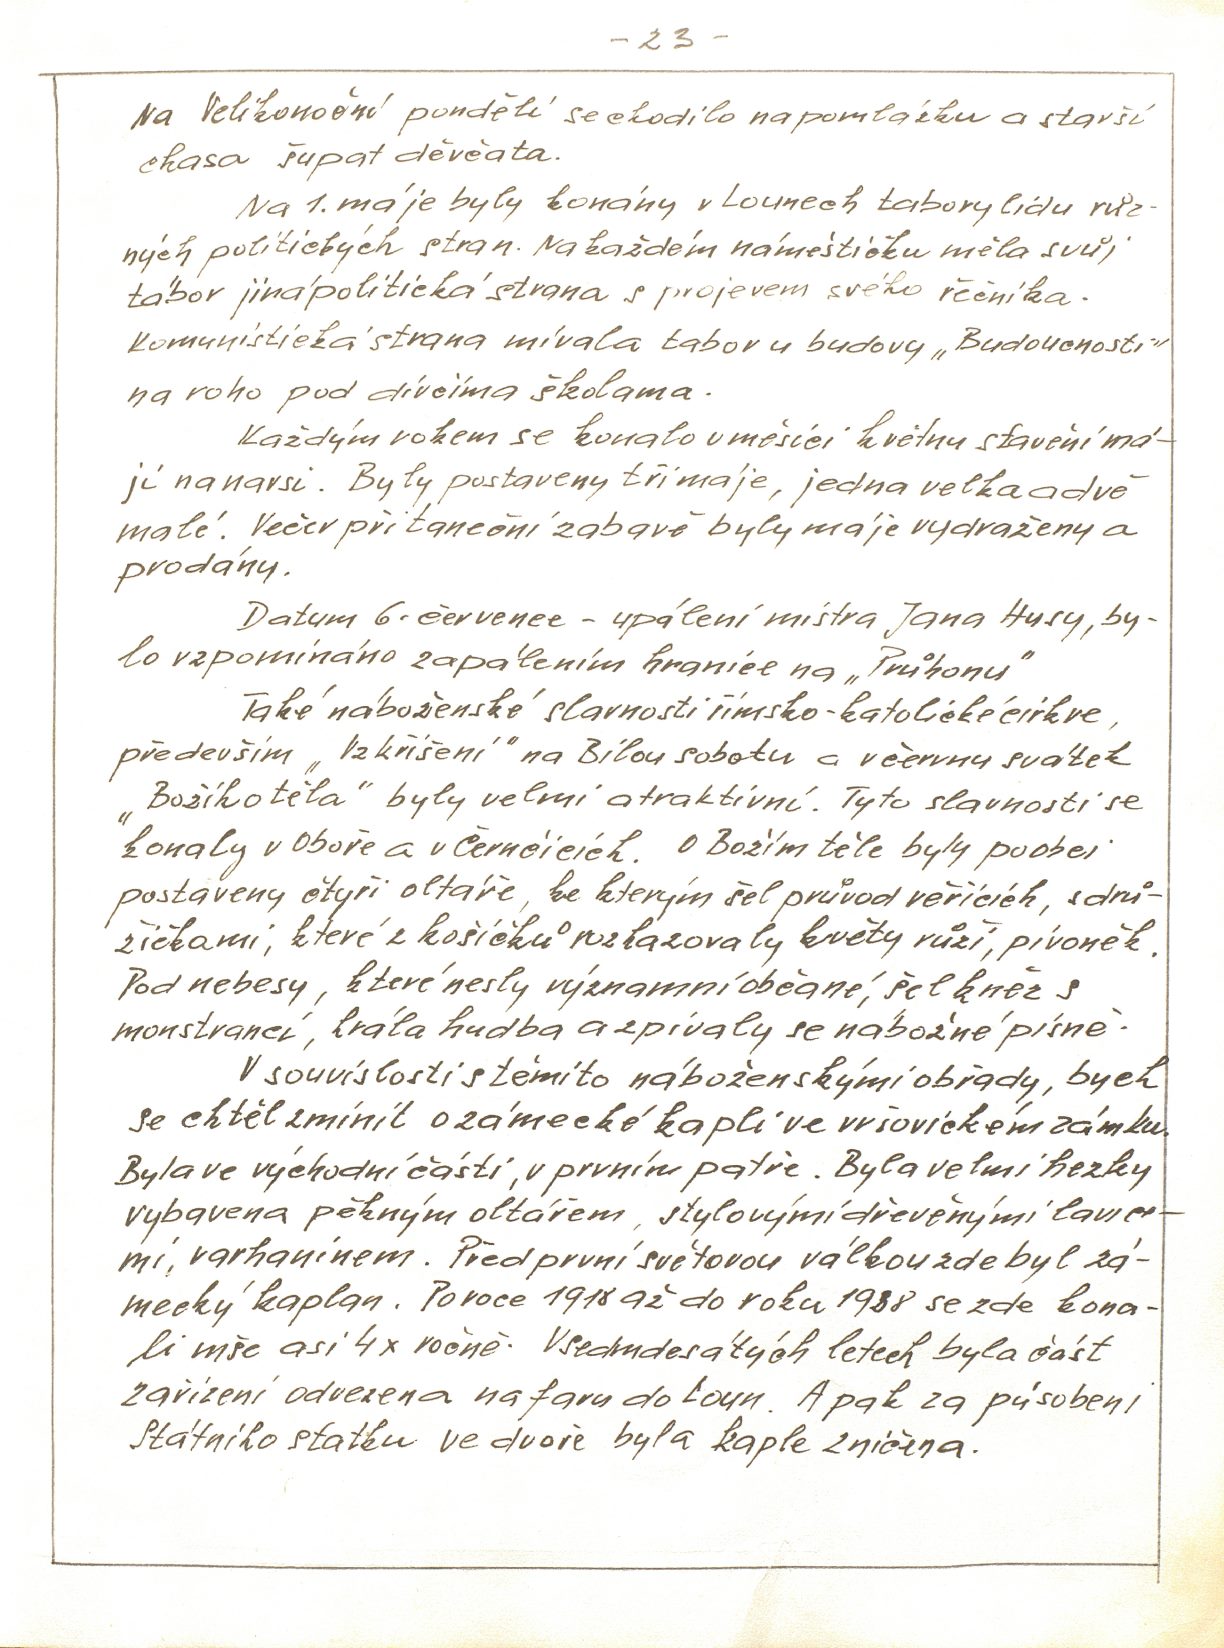 - 23 -
Na Velikonoční pondělí se chodilo na pomlázku a starší
chasa šupat děvčata.
Na 1. máje byly konány v Lounech tabory lidu růz-
ných politických stran. Na každém náměstíčku měla svůj
tábor jiná politická strana s projevem svého řečníka.
Komunistická strana mívala tabor u budovy „Budoucnosti"
na roho pod dívčíma školama.
Každým rokem se konalo v měsíci květnu stavění má-
jí na narsi. Byly postaveny tři máje, jedna velka a dvě
malé. Večer při taneční zabavě byly máje vydraženy a
prodány.
Datum 6. července - upálení mistra Jana Husy, by-
lo vzpomínáno zapálením hranice na „Průhonu"
Také náboženské slavnosti římsko-katolické církve,
především „Vzkříšení" na Bílou sobotu a v červnu svátek
„Božího těla" byly velmi atraktivní. Tyto slavnosti se
konaly v Oboře a v Černčicích. O Božím těle byly po obci
postaveny čtyři oltáře, ke kterým šel průvod věřících, s drů-
žičkami, které z košíčků rozhazovaly květy růží, pivoněk.
Pod nebesy, které nesly významní občané, šel kněz s
monstrancí, hrála hudba a zpívaly se nábožné písně.
V souvislosti s těmito náboženskými obřady, bych
se chtěl zmínit o zámecké kapli ve vršovickém zámku.
Byla ve východní části, v prvním patře. Byla velmi hezky
vybavena pěkným oltářem, stylovými dřevěnými lavice-
mi, varhanínem. Před první světovou válkou zde byl zá-
mecký kaplan. Po roce 1918 až do roku 1938 se zde kona-
li mše asi 4x ročně. V sedmdesátých letech byla část
zařízení odvezena na faru do Loun. A pak za působení
Státního statku ve dvoře byla kaple zničena.